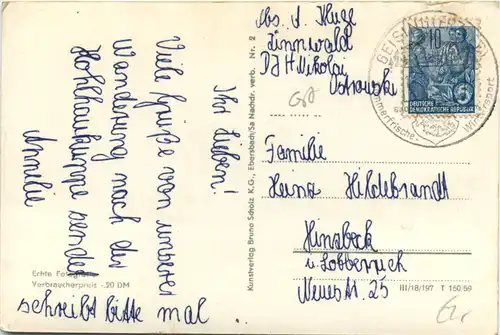 Ihr Lieben!
Viele Grüße von unserer
Wanderung nach der
Hohlhaukuppe sendet
Annelie
schreibt bitte mal.
Echte Fotogr
Verbraucherpreis -.20 DM
Kunstverlag Bruno Scholz K.G., Ebersbach/Sa Naddr. verb. Nr. 2
Abs. A. Kluge
Zinnwald
DJH Nikolai
Ostrowski
10
5
DEUTSCHE
DEMOKRATISCHE REPUBLIK
Sommerfrische
Wintersport
Familie
Heinz Hildebrandt
Hinsbeck
ü. Lobberich
Neuestr. 25
III/18/197 T 160/59